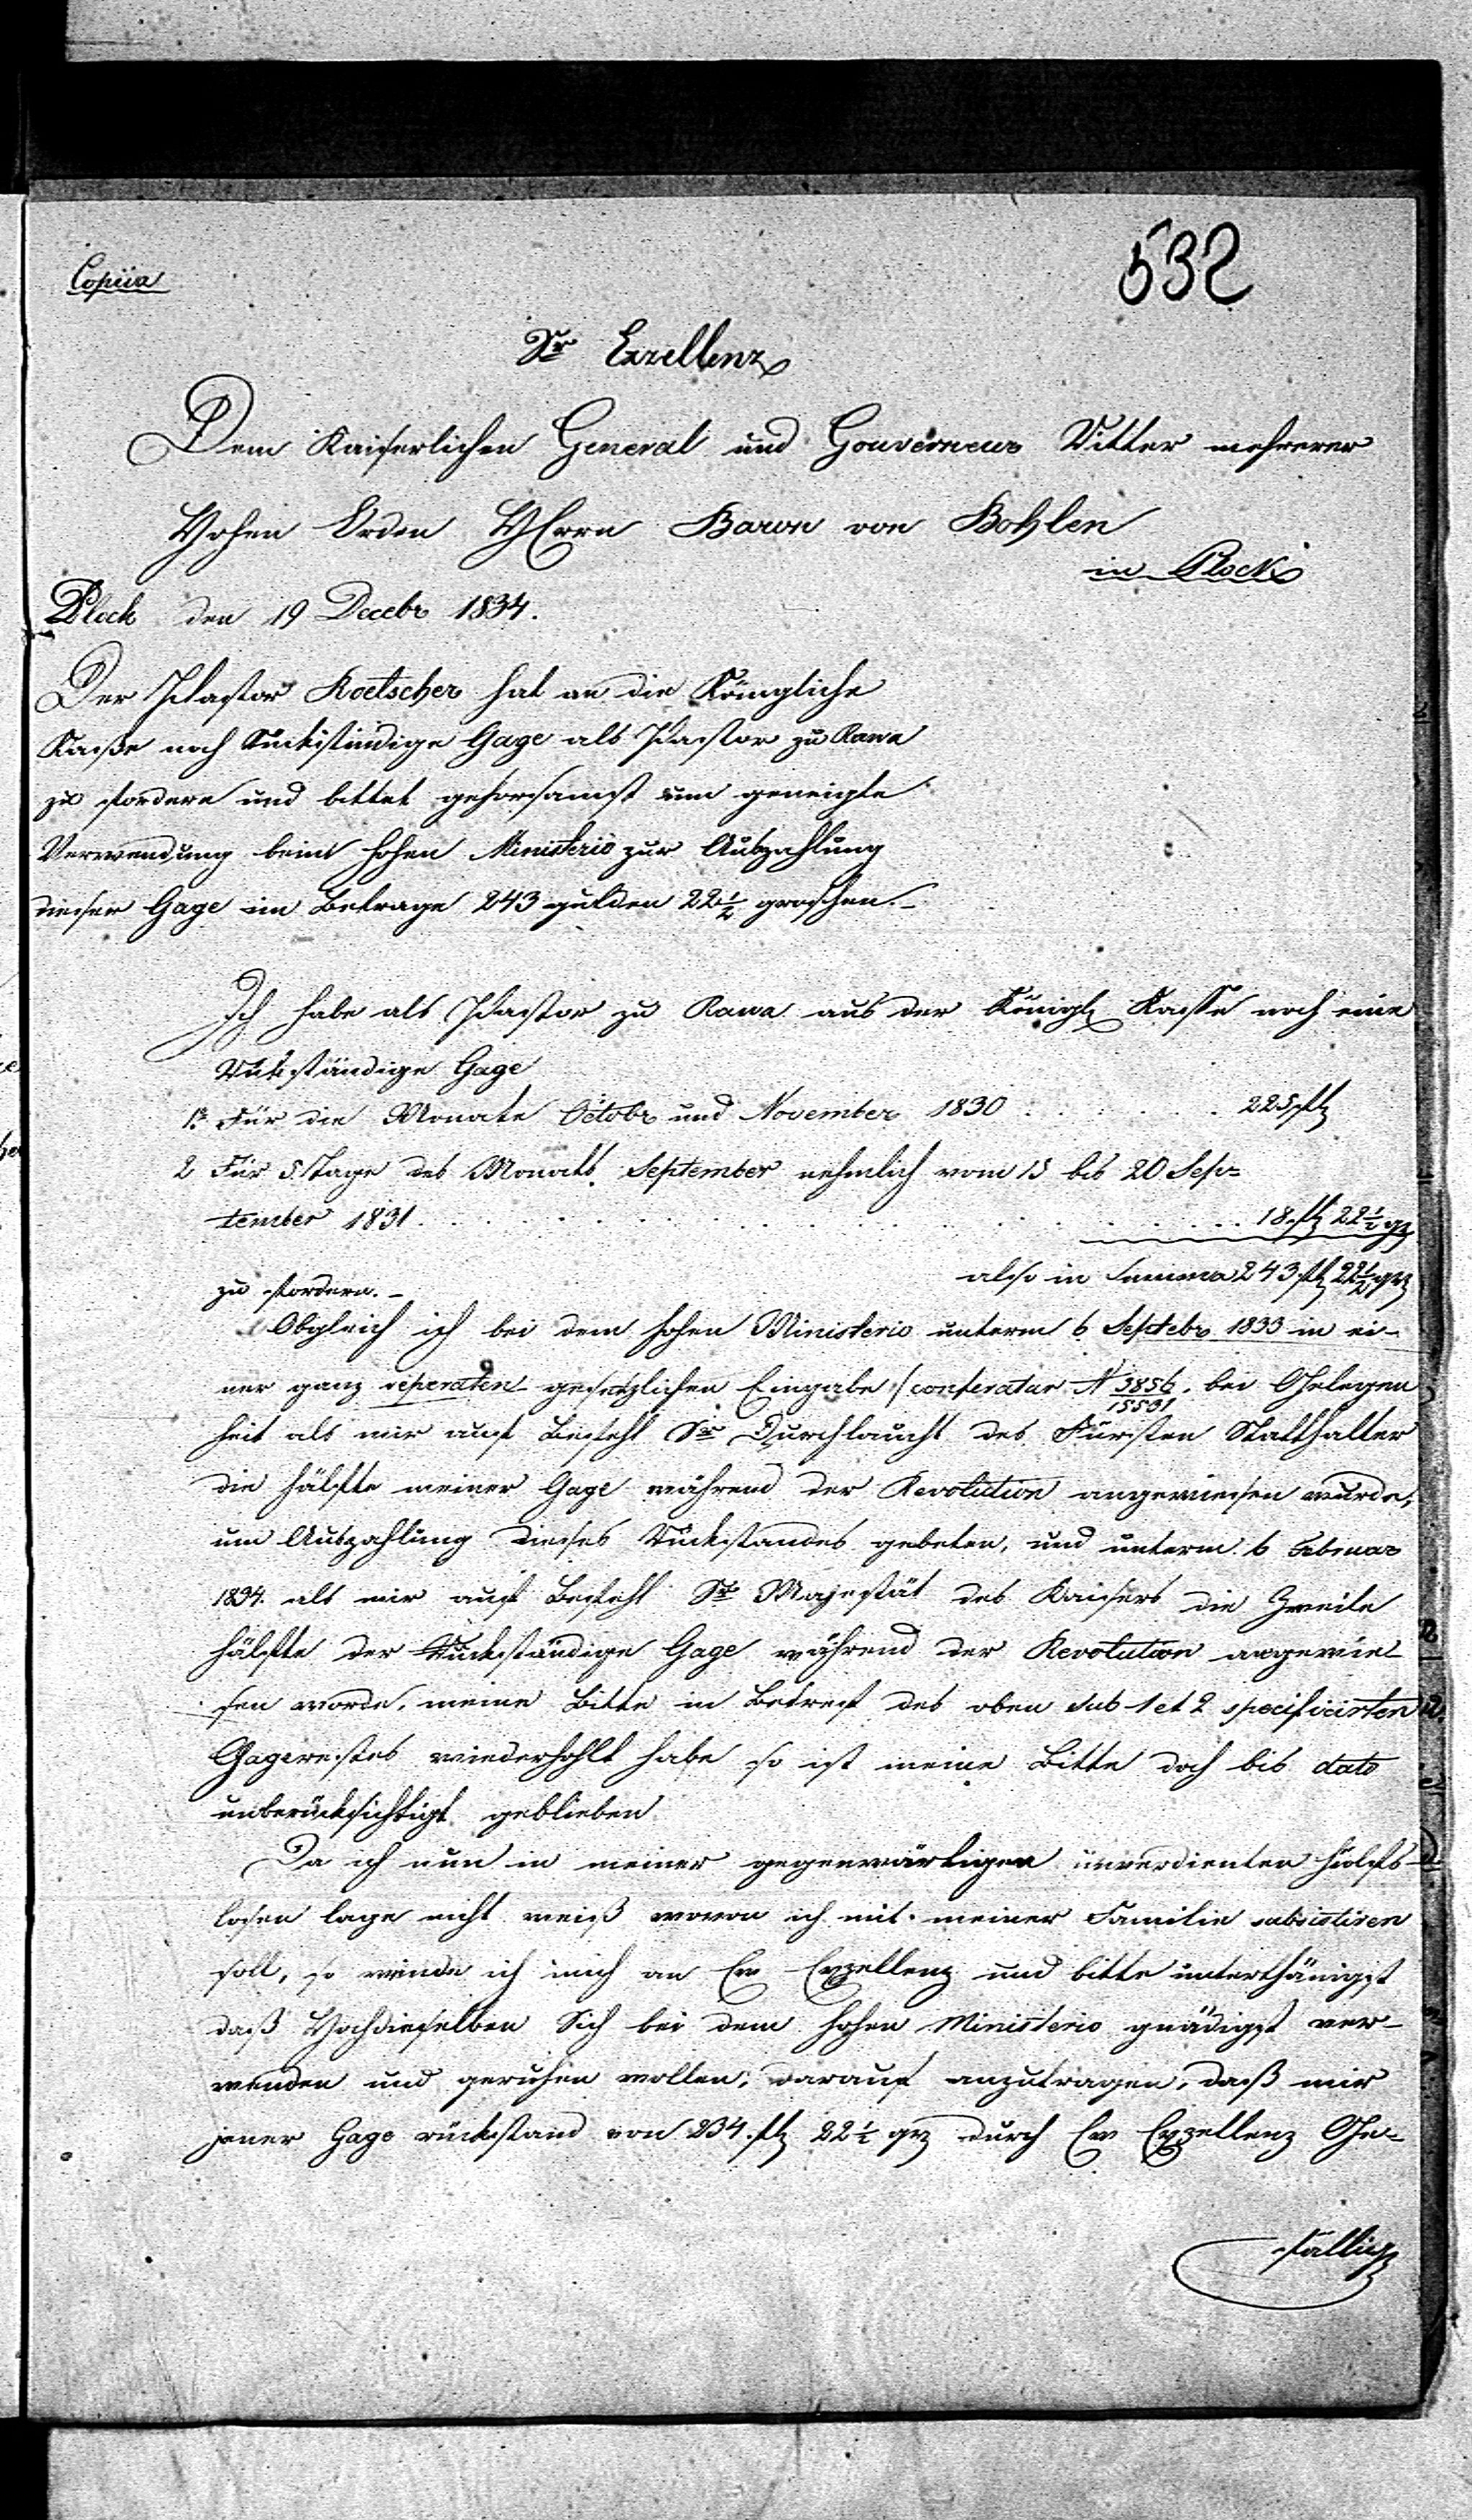 532
Copiia
Sr Exzellenz
Dem Kaiserlichen General und Gouverneur Ritter mehrerer
Hohen Orden HErrn Baron von Bohlen
in Plock
Plock den 19 Decebr 1834.
Der Pastor Roetscher hat an die Königliche
Kaße noch Rückständige Gage als Pastor zu Rawa
zu fordern und bittet gehorsamst um geneigte
Verwendung beim hohen Ministerio zur Auszahlung
dieser Gage im Betrage 243 gulden 22½ groschen.–
Ich habe als Pastor zu Rawa aus der Königl Kasse noch eine
Rükständige Gage
1. Für die Monate Octobr und November 1830 . . . . . . . 225 fl
2 Für 5 Tage des Monats September nehmlich vom 15 bis 20 Sep=
tember 1831 . . . . . . . . . . . . . . . . 18 fl 22½ gr
also in Summa 243 fl 22½ gr
zu fordern.–
Obgleich ich bei dem hohen Ministerio unterm 6 Septebr 1833 in ei-
ner ganz seperaten gesetzlichen Eingabe /conferatur N 3856/15531. bei Gelegen
heit als mir auf Befehl Sr Durchlaucht des Fürsten Statthalter
die hälfte meiner Gage während der Revolution angewiesen wurde,
um Auszahlung dieses Rückstandes gebeten, und unterm 6 Februar
1834. als mir auf Befehl Sr Majestät des Kaisers die Zweite
hälfte der Rückständige Gage während der Revolution angewie
sen worde, meine Bitte in Betreff des oben sub 1 et 2 specificirten
Gagerestes wiederhohlt habe so ist meine Bitte doch bis dato
unberücksichtigt geblieben
Da ich nun in meiner gegenwärtigen unverdienten hülfs-
losen lage nicht weiß wovon ich mit meiner Familie subsistiren
soll, so wende ich mich an Ew Exzellenz und bitte unterthänigst
daß Hochdieselben Sich bei dem hohen Ministerio gnädigst ver-
wenden und geruhen wollen, darauf anzutragen, daß mir
jener Gage rückstand von 234. fl 22½ gr durch Ew Exzellenz Ge-
fällig